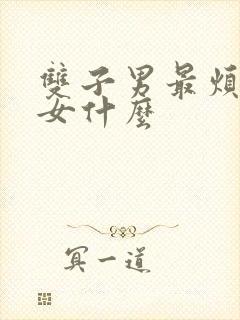 雙子男最煩
女什麼
冥一道